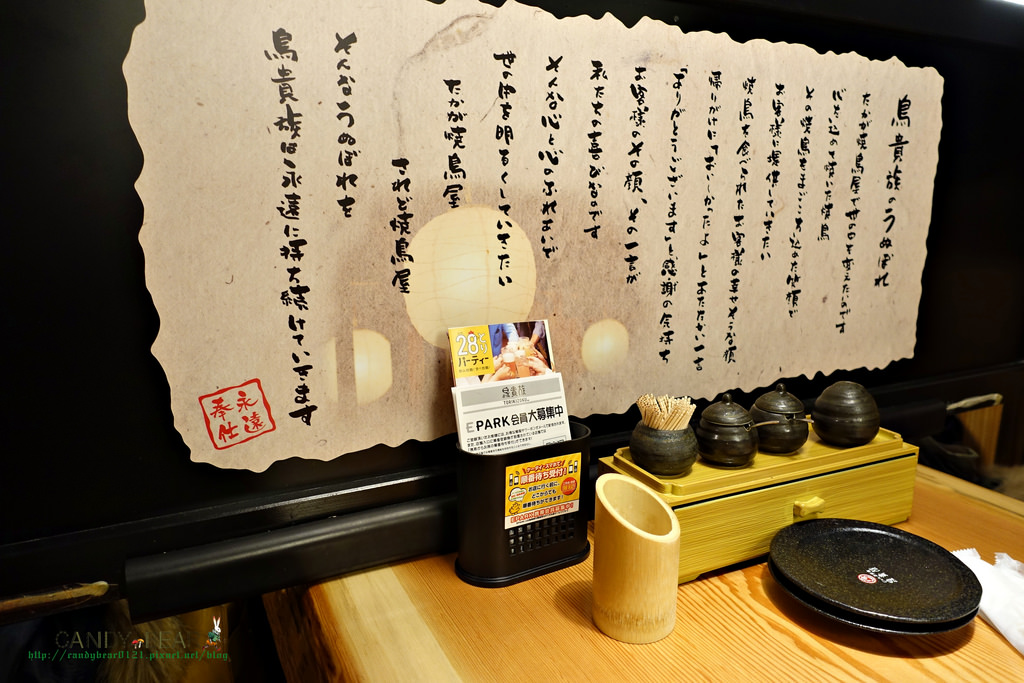 鳥貴族のうぬぼれ
たかが焼鳥屋で世の中を変えたいのです
心を込めて焼いた焼鳥
その焼鳥をまごころ込めた笑顔で
お客様に提供していきたい
焼鳥を食べられたお客様の幸せそうな顔
帰りがけに「ておいしかったよ」とあたたかい一言
「ありがとうございます」と感謝の気持ち
お客様のその顔、その一言が
私たちの喜びなのです
そんな心と心のふれあいで
世の中を明るくしていきたい
たかが焼鳥屋
されど焼鳥屋
そんなうぬぼれを
鳥貴族は永遠に持ち続けていきます
永遠
奉仕
28とり
パーティー
鳥貴族
TORIKIZOKU
EPARK会員大募集中
順番待ち受付!
お店に行く前に
どこからでも
順番待ちができます!
鳥貴族
CANDY NEA
http://candybear0121.pixnet.net/blog